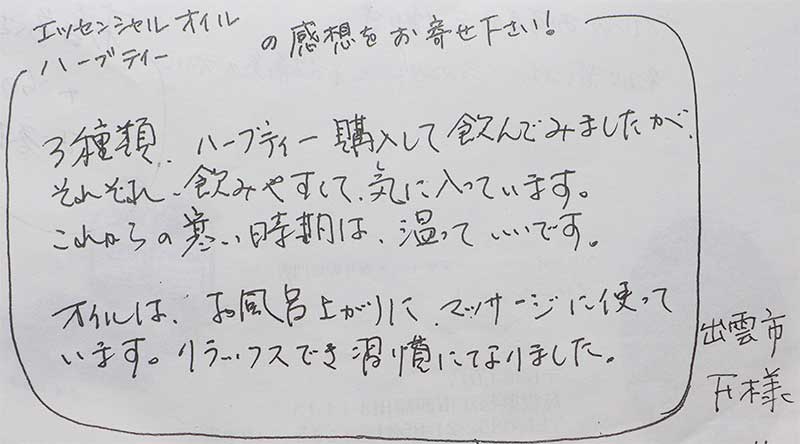 エッセンシャルオイル
ハーブティー
の感想をお寄せ下さい!
3種類、ハーブティー購入して飲んでみましたが、
それぞれ、飲みやすくて、気に入っています。
これからの寒い時期は、温っていいです。
オイルは、お風呂上がりに、マッサージに使って
います。リラックスでき習慣になりました。
出雲市
様